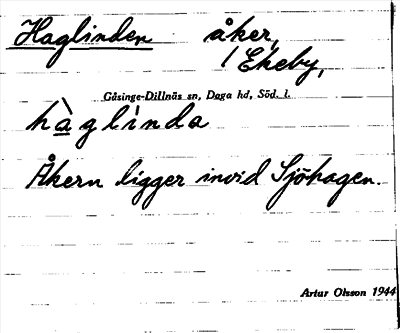 Haglinden åker,
/ Ekeby,
Gåsinge-Dillnäs sn, Daga hd, Söd. l.
hàglìnda
Åkern ligger invid Sjöhagen.
Artur Olsson 1944